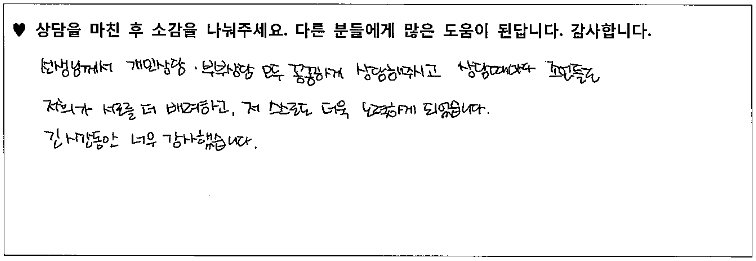 ♥ 상담을 마친 후 소감을 나눠주세요. 다른 분들에게 많은 도움이 된답니다. 감사합니다.
선생님께서 개인상담 · 부부상담 모두 꼼꼼하게 상담해주시고 상담때마다
저희가 서로를 더 배려하고, 저 스스로도 더욱 노력하게 되었습니다.
긴 시간동안 너무 감사했습니다.